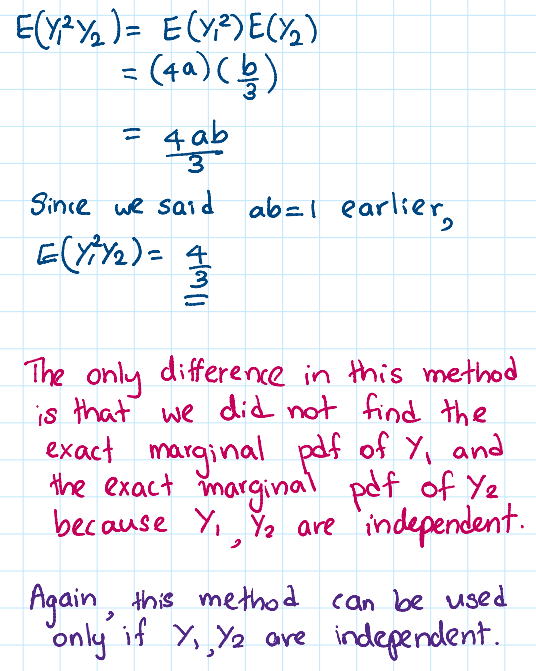 E(Y₁²Y₂) = E(Y₁²)E(Y₂)
= (4a)(b/3)
= 4ab/3
Since we said ab=1 earlier,
E(Y₁²Y₂) = 4/3
The only difference in this method
is that we did not find the
exact marginal pdf of Y₁ and
the exact marginal pdf of Y₂
because Y₁, Y₂ are independent.
Again, this method can be used
only if Y₁, Y₂ are independent.